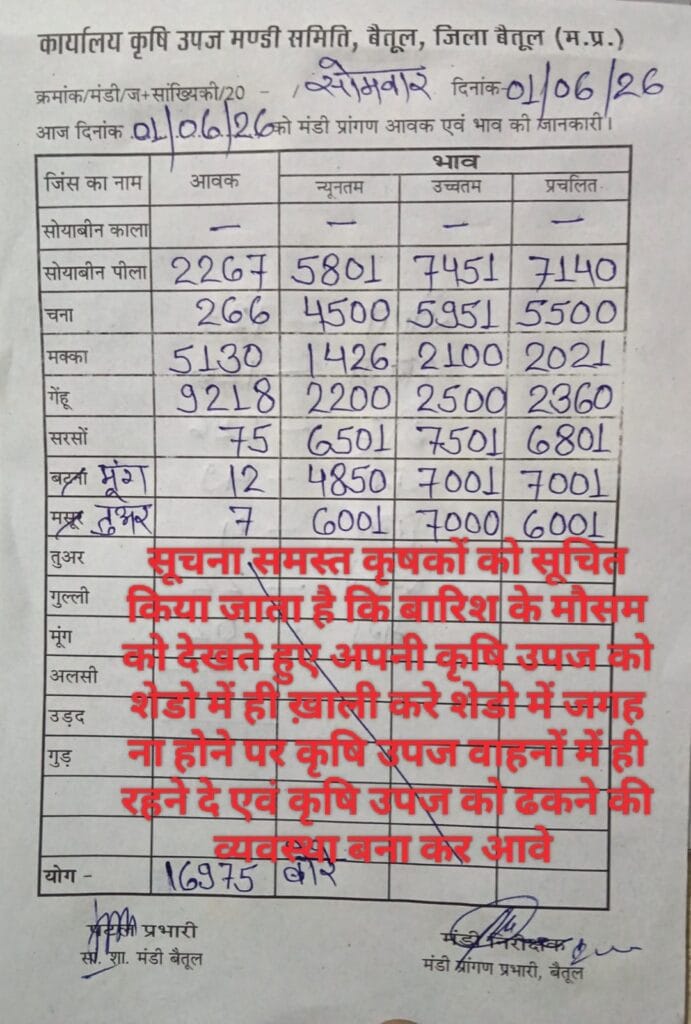 कार्यालय कृषि उपज मण्डी समिति, बैतूल, जिला बैतूल (म.प्र.)
क्रमांक/मंडी/ज+सांख्यिकी/20 - / सोमवार दिनांक-01/06/26
आज दिनांक 01/06/26 को मंडी प्रांगण आवक एवं भाव की जानकारी।
जिंस का नाम आवक भाव
न्यूनतम उच्चतम प्रचलित
सोयाबीन काला — — — —
सोयाबीन पीला 2267 5801 7451 7140
चना 266 4500 5951 5500
मक्का 5130 1426 2100 2021
गेंहू 9218 2200 2500 2360
सरसों 75 6501 7501 6801
बटना मूंग 12 4850 7001 7001
मसूर तुअर 7 6001 7000 6001
तुअर
गुल्ली
मूंग
अलसी
उड़द
गुड़
सूचना समस्त कृषकों को सूचित
किया जाता है कि बारिश के मौसम
को देखते हुए अपनी कृषि उपज को
शेडो में ही ख़ाली करे शेडो में जगह
ना होने पर कृषि उपज वाहनों में ही
रहने दे एवं कृषि उपज को ढकने की
व्यवस्था बना कर आवे
योग - 16975 बोरे
प्रभारी
सां. शा. मंडी बैतूल
मंडी निरीक्षक
मंडी प्रांगण प्रभारी, बैतूल